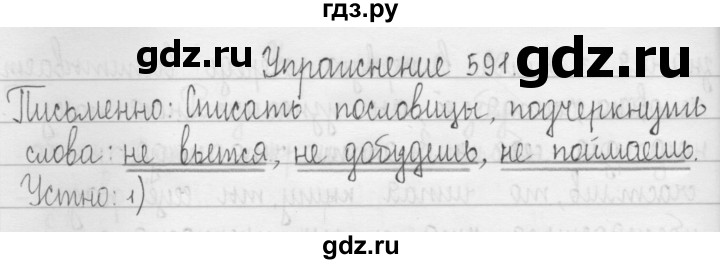 гдз.ру
gdz.ru
gdz.ru
Упражнение 591.
Письменно: Списать пословицы, подчеркнуть
слова: не вьется, не добудешь, не поймаешь.
Устно: 1)
gdz.ru